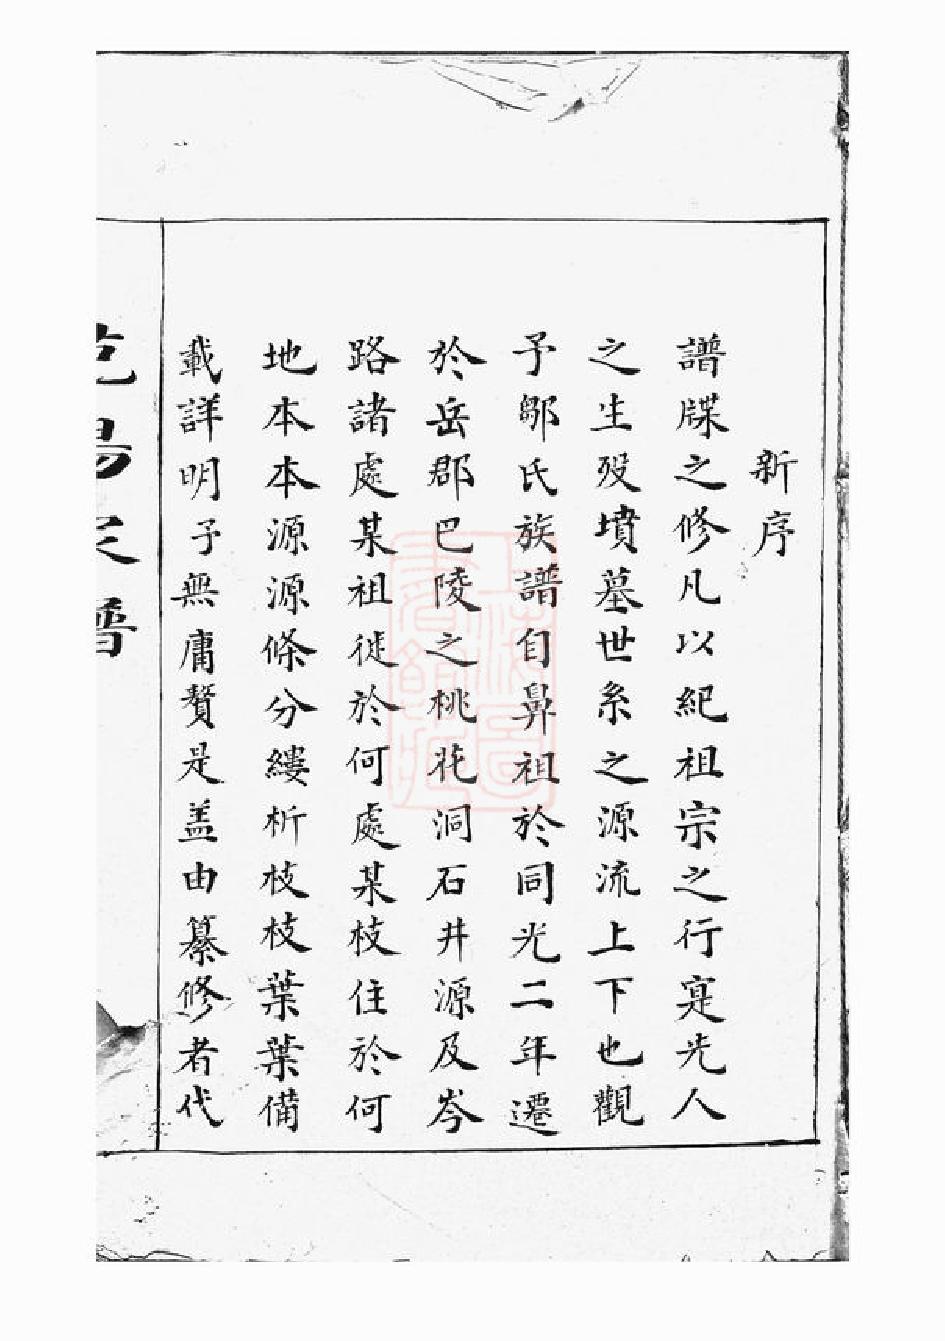 新序
譜牒之修凡以紀祖宗之行寔先人
之生殁墳墓世系之源流上下也觀
予鄒氏族譜自鼻祖於同光二年遷
於岳郡巴陵之桃花洞石井源及岑
路諸處某祖徙於何處某枝住於何
地本本源源條分縷析枝枝葉葉備
載詳明予無庸贅是盖由纂修者代